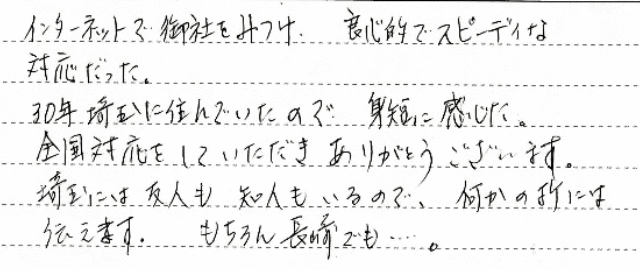 インターネットで御社をみつけ、良心的でスピーディな
対応だった。
30年埼玉に住んでいたので身短に感じた。
全国対応をしていただきありがとうございます。
埼玉には友人も知人もいるので、何かの折には
伝えます。もちろん長崎でも……。